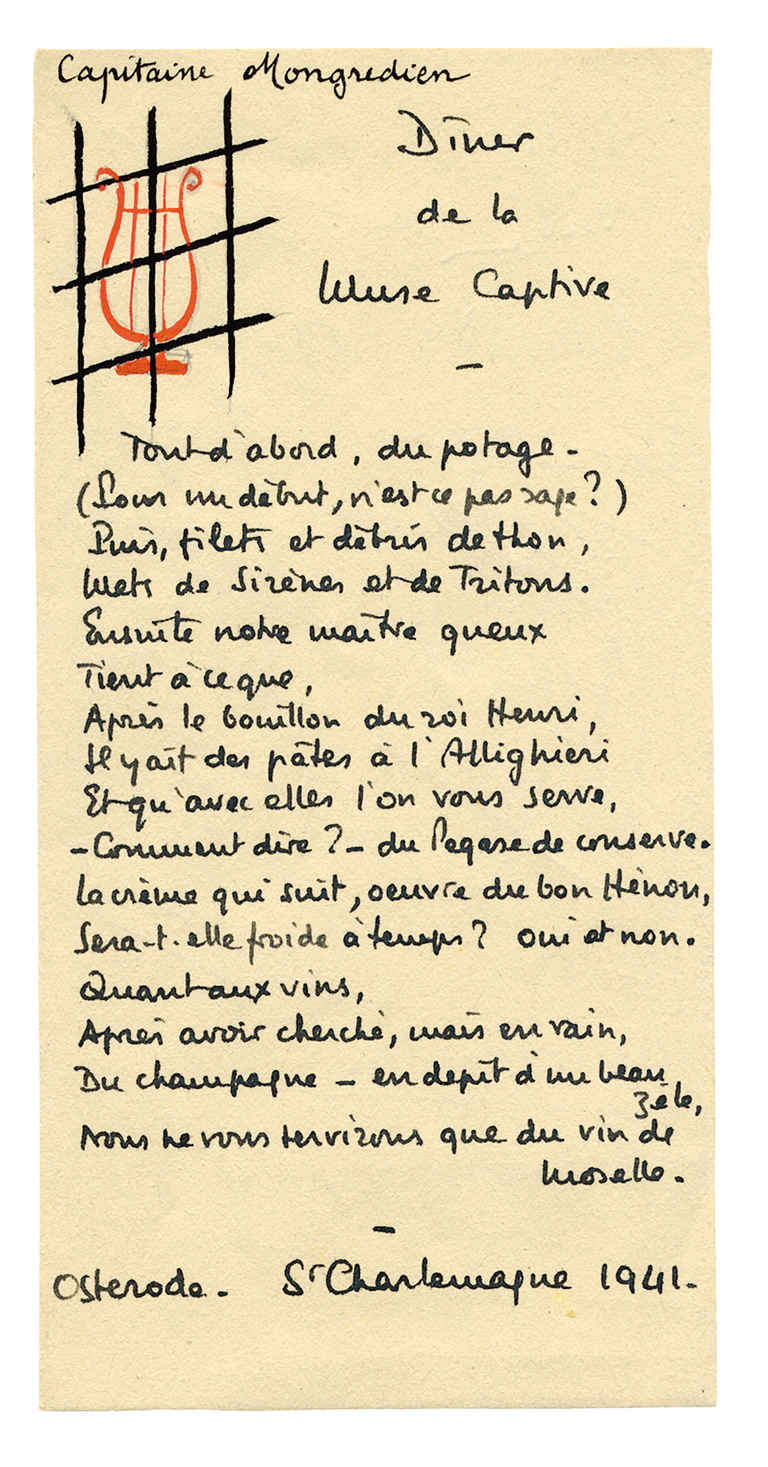 Capitaine Mongrédien
Dîner
de la
Muse Captive
–
Tout d'abord, du potage -
(Pour un début, n'est ce pas sage ?)
Puis, filets et débris de thon,
Mets de Sirènes et de Tritons.
Ensuite notre maître queux
Tient à ce que,
Après le bouillon du roi Henri,
Il y ait des pâtes à l'Allighieri
Et qu'avec elles l'on vous serve,
- Comment dire ? - du Pegase de conserve.
La crème qui suit, oeuvre du bon Hénon,
Sera-t-elle froide à temps ? Oui et non.
Quant aux vins,
Après avoir cherché, mais en vain,
Du champagne - en dépit d'un beau
zèle,
Nous ne vous servirons que du vin de
Moselle.
–
Osterode. St Charlemagne 1941.